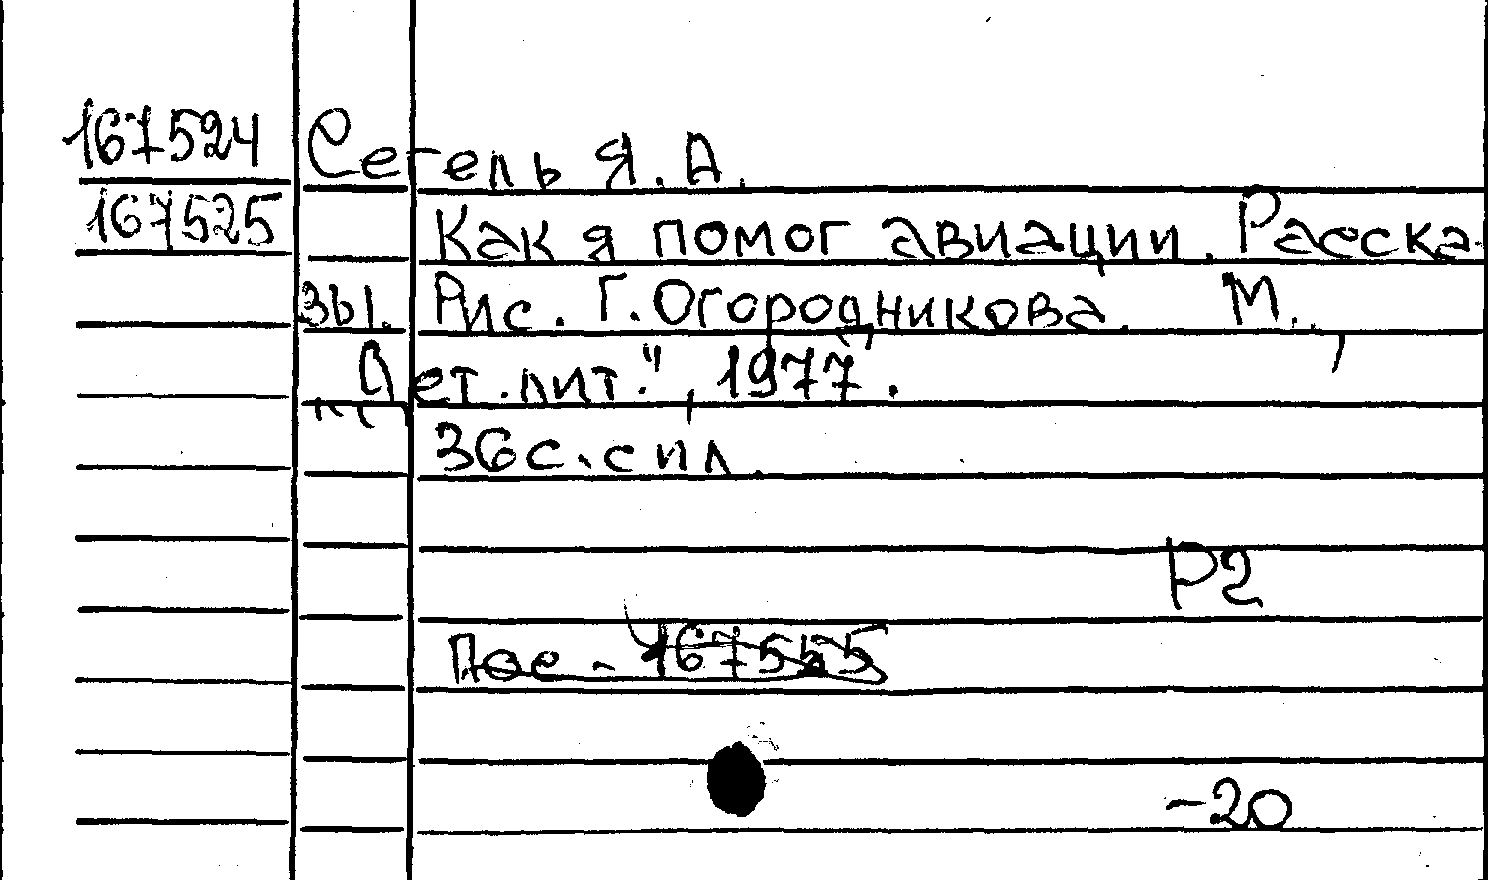 167524 Сегель Я. А.
167525 Как я помог авиации. Расска-
зы. Рис. Г. Огородникова. М.,
"Дет. лит.", 1977.
36 с. с ил.
Р2
Пос. - 167525
-20